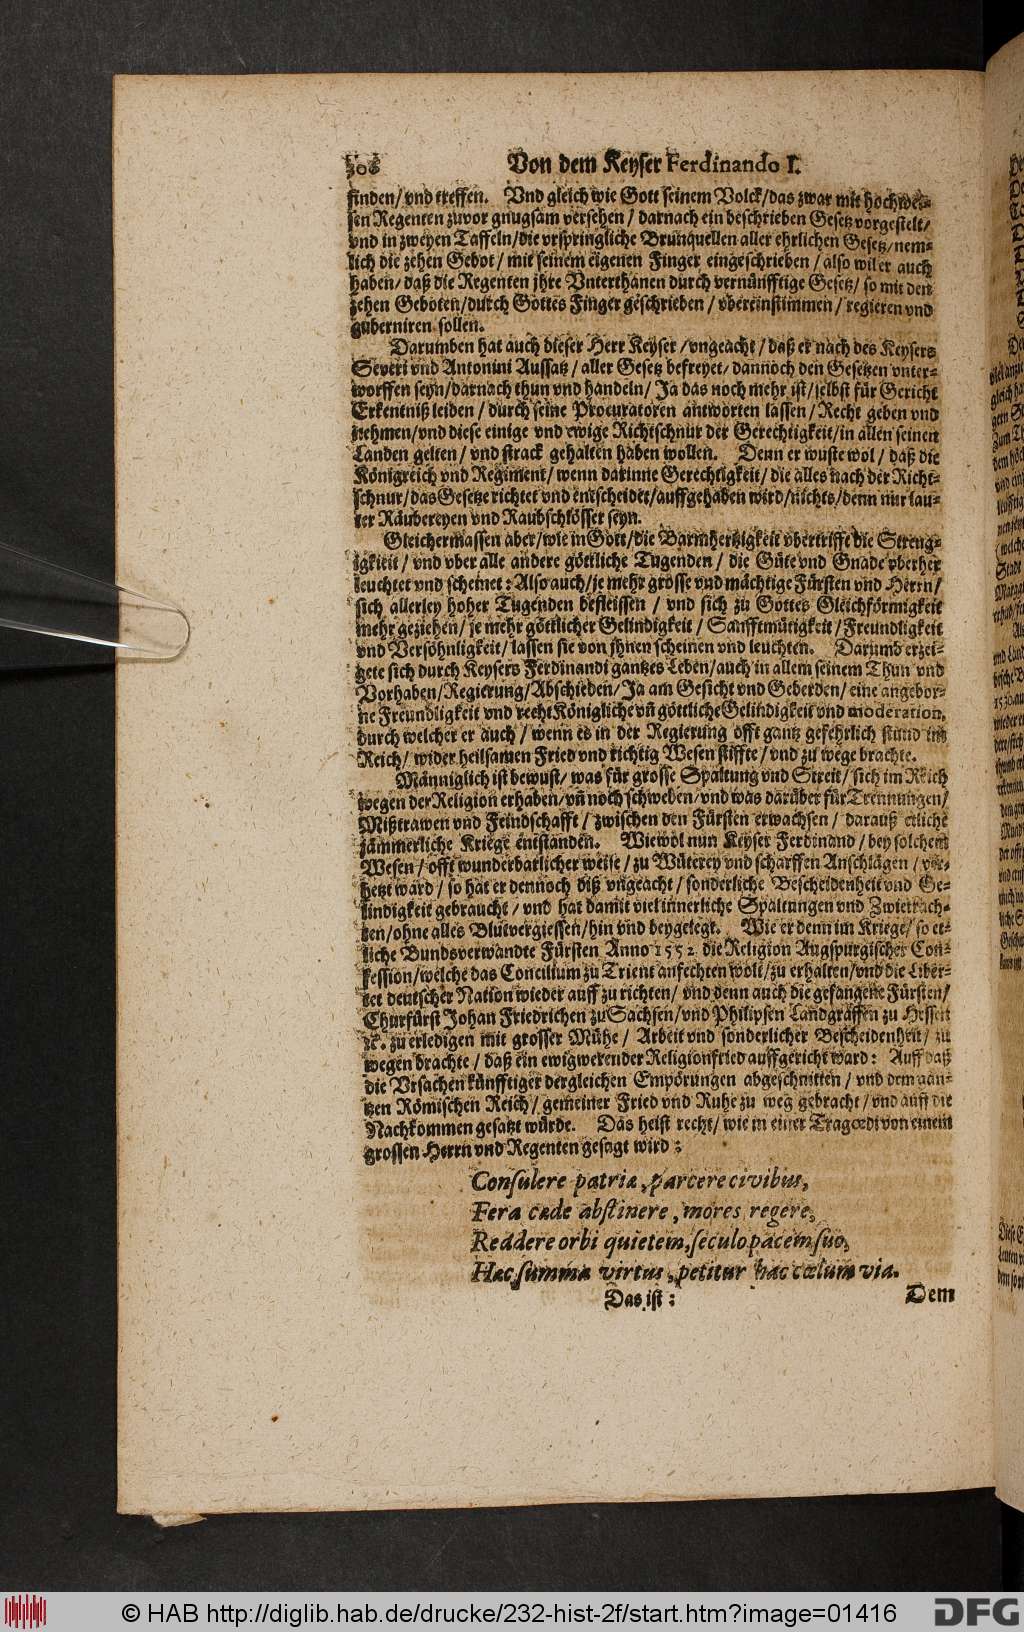 Von dem Keyser Ferdinando I.
finden/ vnd treffen. Vnd gleich wie Gott seinem Volck/das zwar mit hochwei-
sen Regenten zuvor gnugsam versehen/ darnach ein beschrieben Gesetz vorgestelt/
vnd in zweyen Taffeln/die vrspringliche Brunquellen aller ehrlichen Gesetz/nem-
lich die zehen Gebot/ mit seinem eigenen Finger eingeschrieben/ also wil er auch
haben/ daß die Regenten jhre Vnterthanen durch vernünfftige Gesetz/ so mit den
zehen Geboten/durch Gottes Finger geschrieben/ vbereinstimmen/ regieren vnd
guberniren sollen.
Darumben hat auch dieser Herr Keyser/ vngeacht/ daß er nach des Keysers
Severi vnd Antonini Aussatz/ aller Gesetz befreyet/ dannoch den Gesetzen vnter-
worffen seyn/darnach thun vnd handeln/ Ja das noch mehr ist/selbst für Gericht
Erkentniß leiden/ durch seine Procuratoren antworten lassen/ Recht geben vnd
nehmen/vnd diese einige vnd ewige Richtschnur der Gerechtigkeit/in allen seinen
Landen gelten/ vnd strack gehalten haben wollen. Denn er wuste wol/ daß die
Königreich vnd Regiment/ wenn darinne Gerechtigkeit/ die alles nach der Richt-
schnur/das Gesetze richtet vnd entscheidet/auffgehaben wird/nichts/denn nur lau-
ter Räubereyen vnd Raubschlösser seyn.
Gleichermassen aber/wie in Gott/die Barmhertzigkeit vbertriffe die Streng-
igkieit/ vnd vber alle andere göttliche Tugenden/ die Güte vnd Gnade vberher
leuchtet vnd scheinet: Also auch/je mehr grosse vnd mächtige Fürsten vnd Herrn/
sich allerley hoher Tugenden befleissen/ vnd sich zu Gottes Gleichförmigkeit
mehr geziehen/ je mehr göttlicher Gelindigkeit/ Sanfftmütigkeit/ Freundligkeit
vnd Versöhnligkeit/ lassen sie von jhnen scheinen vnd leuchten. Darumb erzei-
gete sich durch Keysers Ferdinandi gantzes Leben/auch in allem seinem Thun vnd
Vorhaben/Regierung/Abschieden/ Ja am Gesicht vnd Geberden/ eine angebor-
ne Freundligkeit vnd recht Königliche vñ göttliche Gelindigkeit vnd moderation,
durch welcher er auch/ wenn es in der Regierung offt gantz gefehrlich stund im
Reich/ wider heilsamen Fried vnd richtig Wesen stiffte/ vnd zu wege brachte.
Männiglich ist bewust/ was für grosse Spaltung vnd Streit/ sich im Reich
wegen der Religion erhaben/vñ noch schweben/vnd was darüber für Trennungen/
Mißtrawen vnd Feindschafft/ zwischen den Fürsten erwachsen/ darauß etliche
jämmerliche Kriege entstanden. Wiewol nun Keyser Ferdinand/ bey solchem
Wesen/ offt wunderbarlicher weise/ zu Wüterey vnd scharffen Anschlägen/ ver-
hetzt ward/ so hat er dennoch diß vngeacht/ sonderliche Bescheidenheit vnd Ge-
lindigkeit gebraucht/ vnd hat damit viel innerliche Spaltungen vnd Zwietrach-
ten/ohne alles Blutvergiessen/hin vnd beygelegt. Wie er denn im Kriege/ so et-
liche Bundsverwandte Fürsten Anno 1552. die Religion Augspurgischer Con-
fession/welche das Concilium zu Trient anfechten wolt/zu erhalten/vnd die Liber-
tet deutscher Nation wieder auff zu richten/ vnd denn auch die gefangene Fürsten/
Churfürst Johan Friedrichen zu Sachsen/vnd Philipsen Landgraffen zu Hessen
ꝛc. zu erledigen mit grosser Mühe/ Arbeit vnd sonderlicher Bescheidenheit/ zu
wegen brachte/ daß ein ewigwerender Religionfried auffgericht ward: Auff daß
die Vrsachen künfftiger dergleichen Empörungen abgeschnitten/ vnd dem gan-
tzen Römischen Reich/ gemeiner Fried vnd Ruhe zu weg gebracht/ vnd auff die
Nachkommen gesatzt würde. Das heist recht/ wie in einer Tragœdi von einem
grossen Herrn vnd Regenten gesagt wird:
Consulere patriæ, parcere civibus,
Fera cæde abstinere, mores regere,
Reddere orbi quietem, seculo pacem suo,
Hæc summa virtus, petitur hac cœlum via.
Das ist:
Dem
© HAB http://diglib.hab.de/drucke/232-hist-2f/start.htm?image=01416
DFG